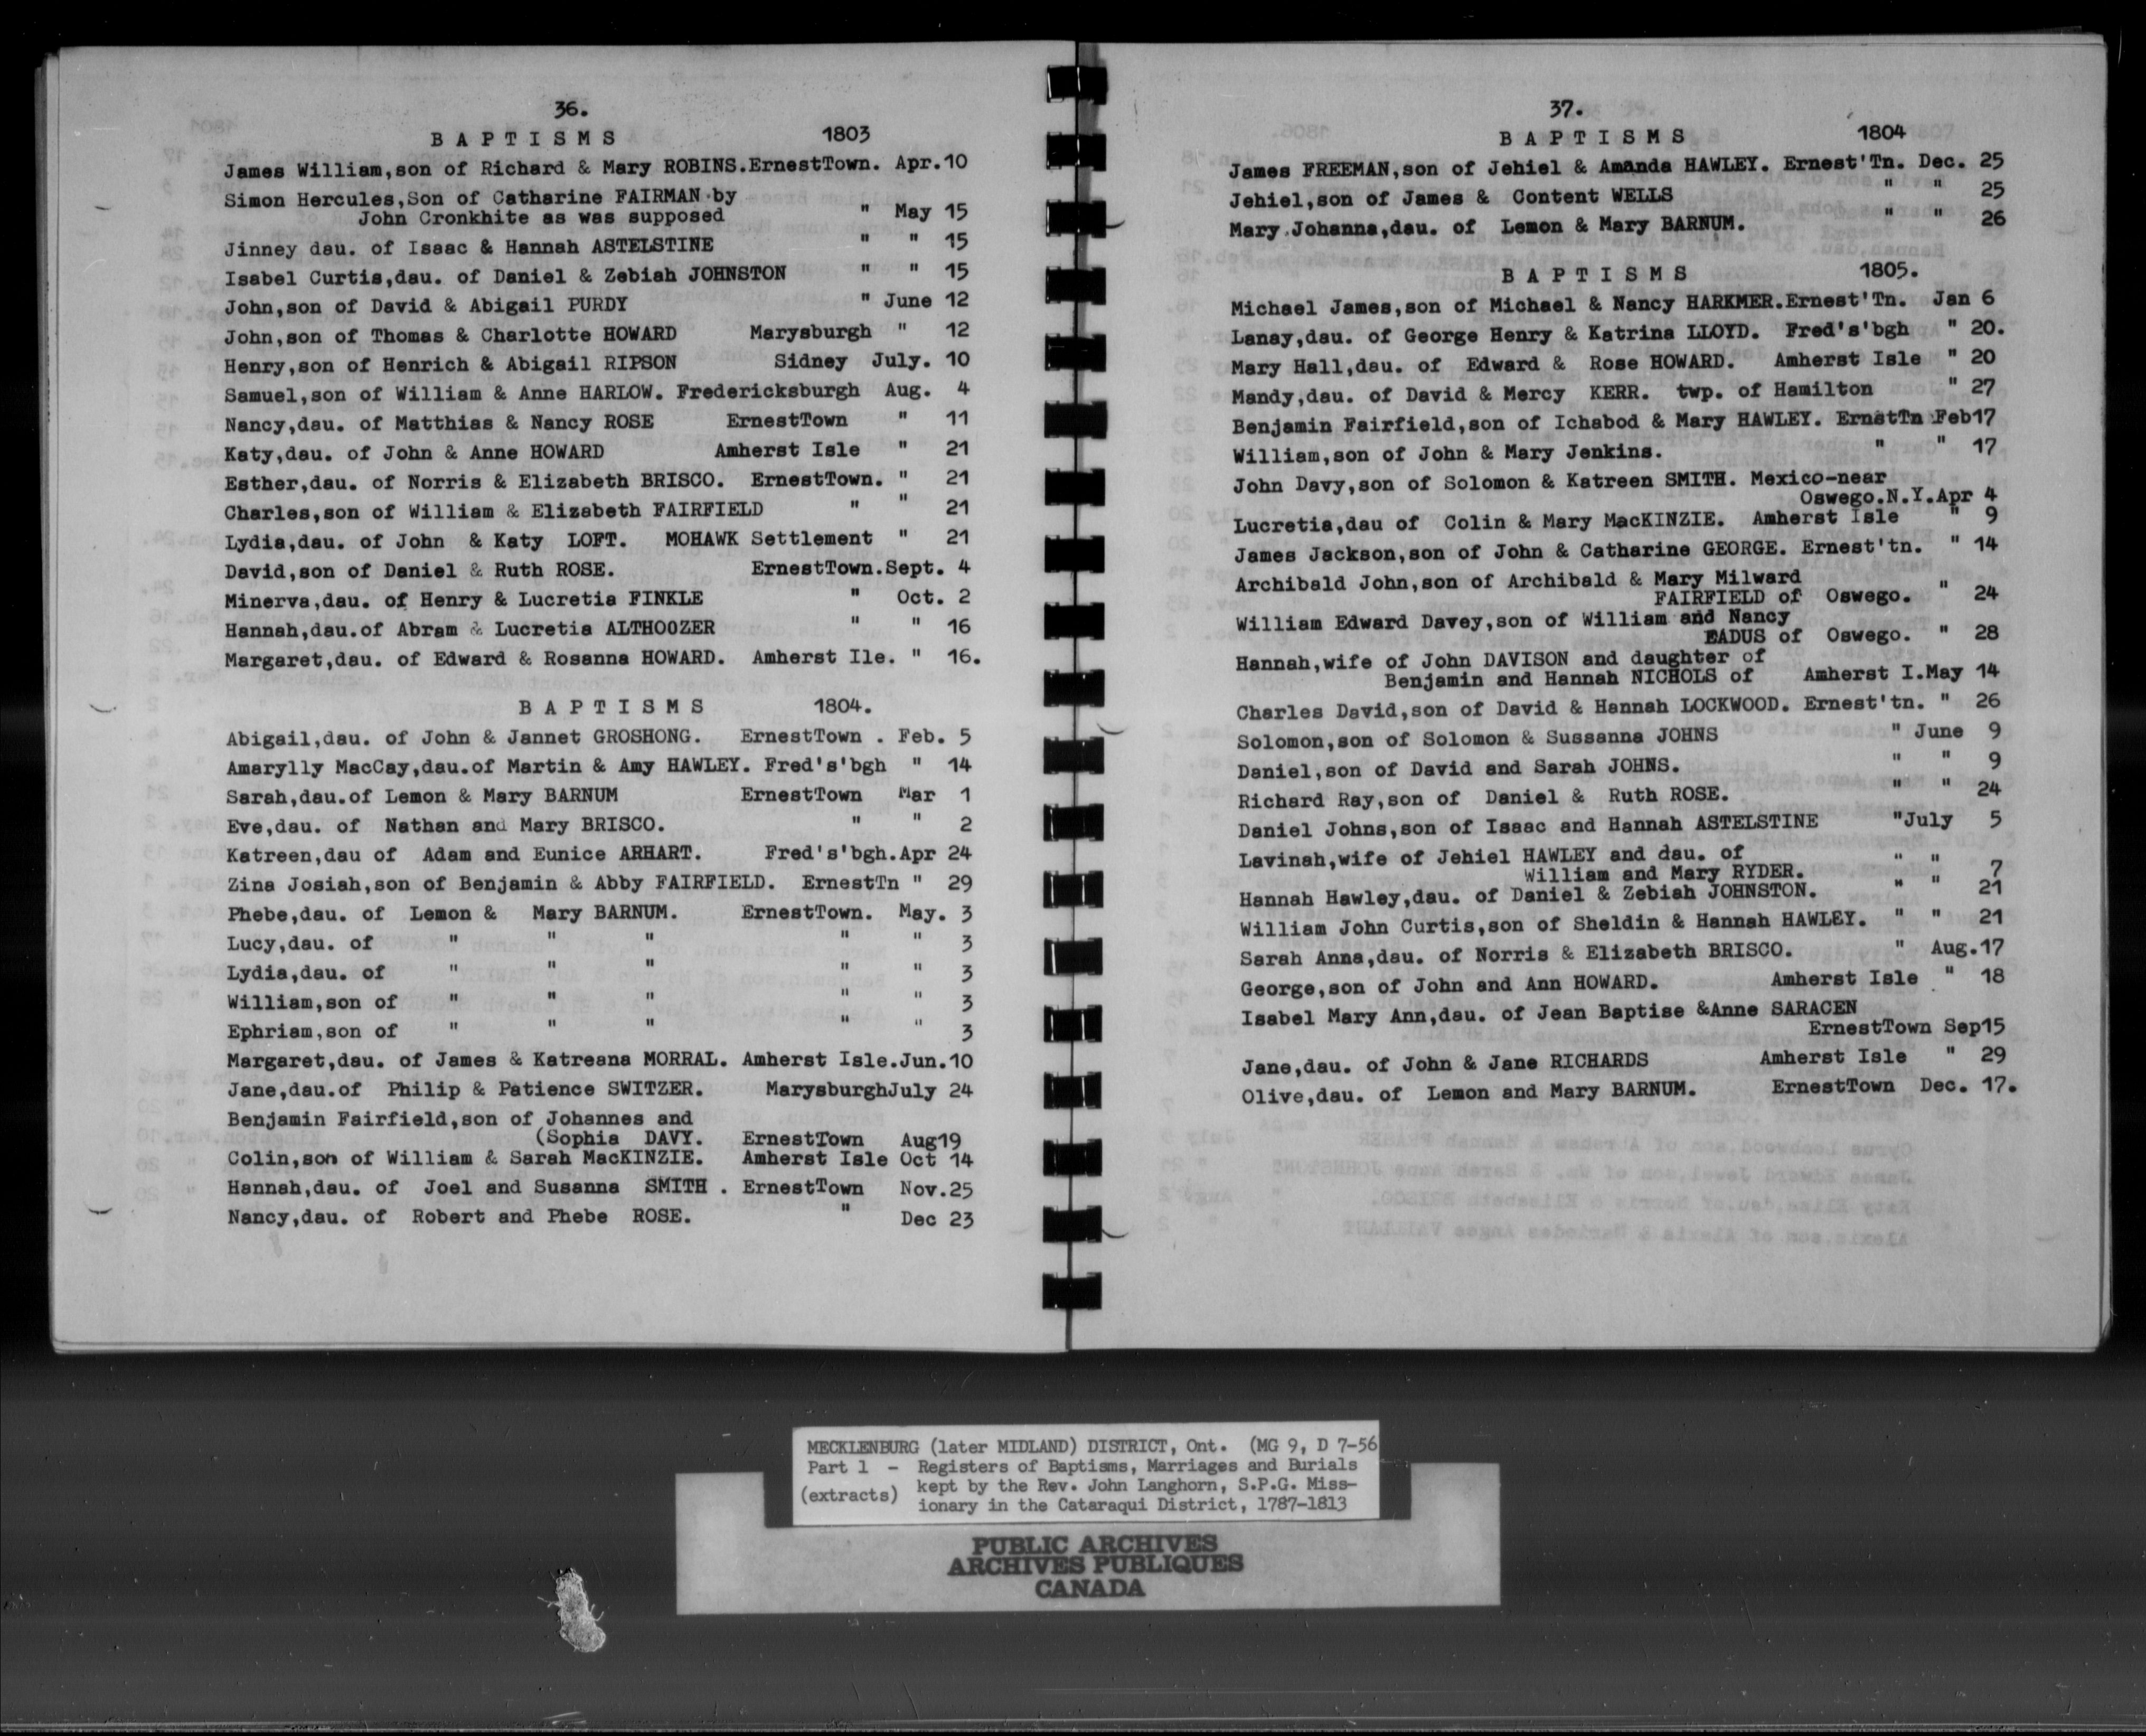 36.
BAPTISMS 1803
James William,son of Richard & Mary ROBINS.ErnestTown. Apr.10
Simon Hercules,Son of Catharine FAIRMAN by
John Cronkhite as was supposed " May 15
Jinney dau. of Isaac & Hannah ASTELSTINE " " 15
Isabel Curtis,dau. of Daniel & Zebiah JOHNSTON " " 15
John,son of David & Abigail PURDY " June 12
John,son of Thomas & Charlotte HOWARD Marysburgh " 12
Henry,son of Henrich & Abigail RIPSON Sidney July. 10
Samuel,son of William & Anne HARLOW. Fredericksburgh Aug. 4
Nancy,dau. of Matthias & Nancy ROSE ErnestTown " 11
Katy,dau. of John & Anne HOWARD Amherst Isle " 21
Esther,dau. of Norris & Elizabeth BRISCO. ErnestTown. " 21
Charles,son of William & Elizabeth FAIRFIELD " " 21
Lydia,dau. of John & Katy LOFT. MOHAWK Settlement " 21
David,son of Daniel & Ruth ROSE. ErnestTown.Sept. 4
Minerva,dau. of Henry & Lucretia FINKLE " Oct. 2
Hannah,dau.of Abram & Lucretia ALTHOOZER " " 16
Margaret,dau. of Edward & Rosanna HOWARD. Amherst Ile. " 16.
BAPTISMS 1804.
Abigail,dau. of John & Jannet GROSHONG. ErnestTown . Feb. 5
Amarylly MacCay,dau.of Martin & Amy HAWLEY. Fred's'bgh " 14
Sarah,dau.of Lemon & Mary BARNUM ErnestTown Mar 1
Eve,dau. of Nathan and Mary BRISCO. " " 2
Katreen,dau of Adam and Eunice ARHART. Fred's'bgh.Apr 24
Zina Josiah,son of Benjamin & Abby FAIRFIELD. ErnestTn " 29
Phebe,dau. of Lemon & Mary BARNUM. ErnestTown. May. 3
Lucy,dau. of " " " " " 3
Lydia,dau. of " " " " " 3
William,son of " " " " " 3
Ephriam,son of " " " " " 3
Margaret,dau. of James & Katreana MORRAL. Amherst Isle.Jun.10
Jane,dau.of Philip & Patience SWITZER. MarysburghJuly 24
Benjamin Fairfield,son of Johannes and
(Sophia DAVY. ErnestTown Aug19
Colin,son of William & Sarah MacKINZIE. Amherst Isle Oct 14
Hannah,dau. of Joel and Susanna SMITH . ErnestTown Nov.25
Nancy,dau. of Robert and Phebe ROSE. " Dec 23
37.
BAPTISMS 1804
James FREEMAN,son of Jehiel & Amanda HAWLEY. Ernest'Tn. Dec. 25
Jehiel,son of James & Content WELLS " " 25
Mary Johanna,dau. of Lemon & Mary BARNUM. " " 26
BAPTISMS 1805.
Michael James,son of Michael & Nancy HARKMER.Ernest'Tn. Jan 6
Lanay,dau. of George Henry & Katrina LLOYD. Fred's'bgh " 20.
Mary Hall,dau. of Edward & Rose HOWARD. Amherst Isle " 20
Mandy,dau. of David & Mercy KERR. twp. of Hamilton " 27
Benjamin Fairfield,son of Ichabod & Mary HAWLEY. ErnstTn Feb17
William,son of John & Mary Jenkins. " " 17
John Davy,son of Solomon & Katreen SMITH. Mexico-near
Oswego.N.Y.Apr 4
Lucretia,dau of Colin & Mary MacKINZIE. Amherst Isle " 9
James Jackson,son of John & Catharine GEORGE. Ernest'tn. " 14
Archibald John,son of Archibald & Mary Milward
FAIRFIELD of Oswego. " 24
William Edward Davey,son of William and Nancy
EADUS of Oswego. " 28
Hannah,wife of John DAVISON and daughter of
Benjamin and Hannah NICHOLS of Amherst I.May 14
Charles David,son of David & Hannah LOCKWOOD. Ernest'tn. " 26
Solomon,son of Solomon & Sussanna JOHNS " June 9
Daniel,son of David and Sarah JOHNS. " " 9
Richard Ray,son of Daniel & Ruth ROSE. " " 24
Daniel Johns,son of Isaac and Hannah ASTELSTINE "July 5
Lavinah,wife of Jehiel HAWLEY and dau. of
William and Mary RYDER. " " 7
Hannah Hawley,dau. of Daniel & Zebiah JOHNSTON. " " 21
William John Curtis,son of Sheldin & Hannah HAWLEY. " " 21
Sarah Anna,dau. of Norris & Elizabeth BRISCO. " Aug.17
George,son of John and Ann HOWARD. Amherst Isle " 18
Isabel Mary Ann,dau. of Jean Baptise &Anne SARACEN
ErnestTown Sep15
Jane,dau. of John & Jane RICHARDS Amherst Isle " 29
Olive,dau. of Lemon and Mary BARNUM. ErnestTown Dec. 17.
MECKLENBURG (later MIDLAND) DISTRICT, Ont. (MG 9, D 7-56
Part 1 - Registers of Baptisms, Marriages and Burials
(extracts) kept by the Rev. John Langhorn, S.P.G. Miss-
ionary in the Cataraqui District, 1787-1813
PUBLIC ARCHIVES
ARCHIVES PUBLIQUES
CANADA